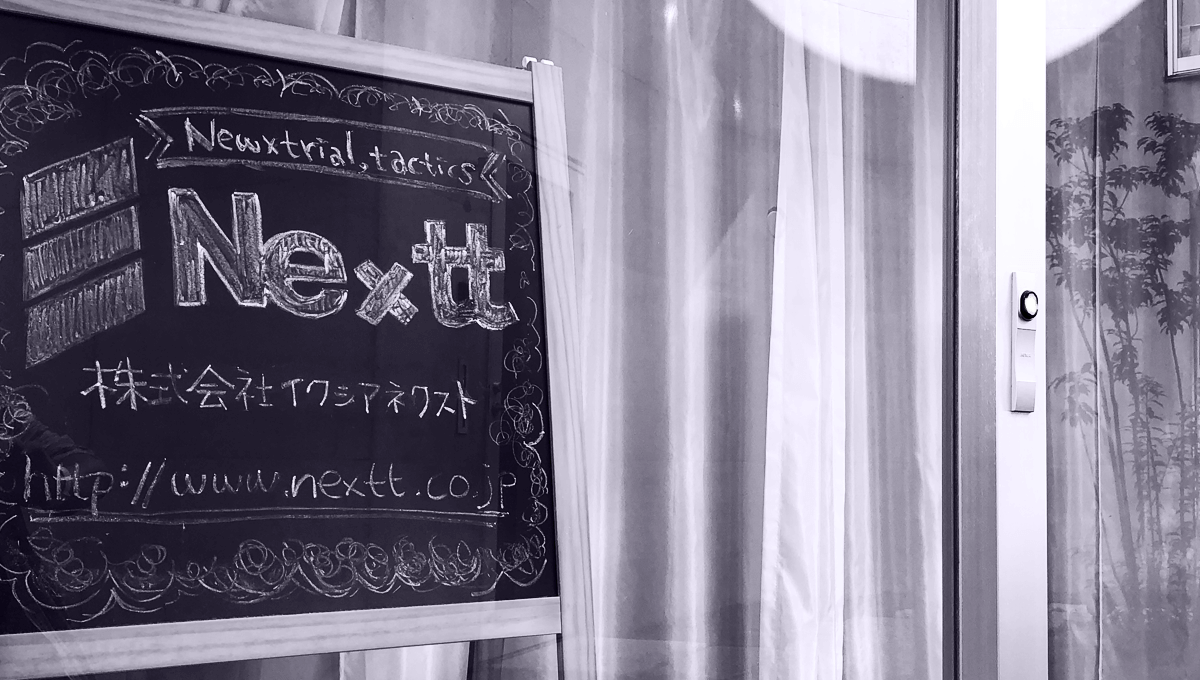 Newxtrial,tactics
Nextt
株式会社イクシアネクスト
http://www.nextt.co.jp